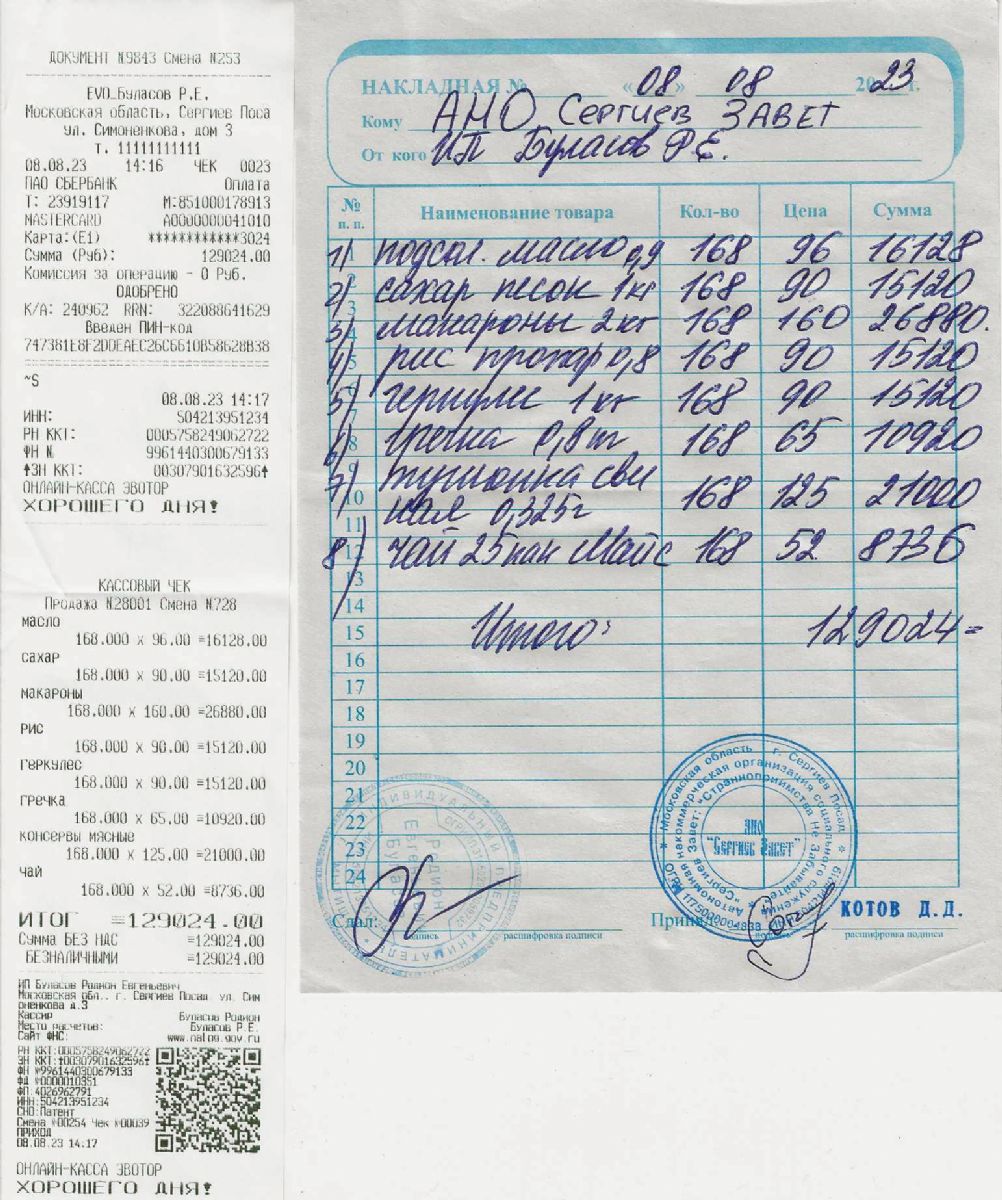 ДОКУМЕНТ №9843 Смена №253
EVO_Буласов Р.Е.
Московская область, Сергиев Поса
ул. Симоненкова, дом 3
т. 11111111111
08.08.23 14:16 ЧЕК 0023
ПАО СБЕРБАНК Оплата
Т: 23919117 М:851000178913
MASTERCARD A0000000041010
Карта:(E1) ************3024
Сумма (Руб): 129024.00
Комиссия за операцию - 0 Руб.
ОДОБРЕНО
К/А: 240962 RRN: 322088641629
Введен ПИН-код
747381E8F2D0EAEC26C6610B58628B38
~S
08.08.23 14:17
ИНН: 504213951234
РН ККТ: 0005758249062722
ФН № 9961440300679133
↑ЗН ККТ: 00307901632596↑
ОНЛАЙН-КАССА ЭВОТОР
ХОРОШЕГО ДНЯ!
КАССОВЫЙ ЧЕК
Продажа №28001 Смена №728
масло
168.000 x 96.00 =16128.00
сахар
168.000 x 90.00 =15120.00
макароны
168.000 x 160.00 =26880.00
рис
168.000 x 90.00 =15120.00
геркулес
168.000 x 90.00 =15120.00
гречка
168.000 x 65.00 =10920.00
консервы мясные
168.000 x 125.00 =21000.00
чай
168.000 x 52.00 =8736.00
ИТОГ =129024.00
Сумма БЕЗ НДС =129024.00
БЕЗНАЛИЧНЫМИ =129024.00
ИП Буласов Родион Евгеньевич
Московская обл., г. Сергиев Посад, ул. Сим
оненкова д.3
Кассир Буласов Родион
Место расчетов: Буласов Р.Е.
Сайт ФНС: www.nalog.gov.ru
РН ККТ:0005758249062722
ЗН ККТ:↑00307901632596↑
ФН №9961440300679133
ФД №0000010351
ФП:4026962791
ИНН:504213951234
СНО:Патент
Смена №00254 Чек №00039
ПРИХОД
08.08.23 14:17
ОНЛАЙН-КАССА ЭВОТОР
ХОРОШЕГО ДНЯ!
НАКЛАДНАЯ № «08» 08 2023 г.
Кому АНО Сергиев ЗАВЕТ
От кого ИП Буласов Р.Е.
№ п. п. Наименование товара Кол-во Цена Сумма
1) подсол. масло 0,9 168 96 16128
2) сахар песок 1кг 168 90 15120
3) макароны 2кг 168 160 26880.
4) рис пропар 0,8 168 90 15120
5) геркулес 1кг 168 90 15120
6) гречка 0,8 168 65 10920
7) тушонка сви
ная 0,325г 168 125 21000
8) чай 25пак Майс 168 52 8736
13
14
15 Итого: 129024=
16
17
18
19
20
21
22
23
24
Московская область г. Сергиев Посад
Автономная некоммерческая организация социального служения
"Сергиев Завет: "Странноприимства Не Забывайте"
АНО
"Сергиев Завет"
Сдал: подпись расшифровка подписи
Принял: КОТОВ Д.Д.
расшифровка подписи